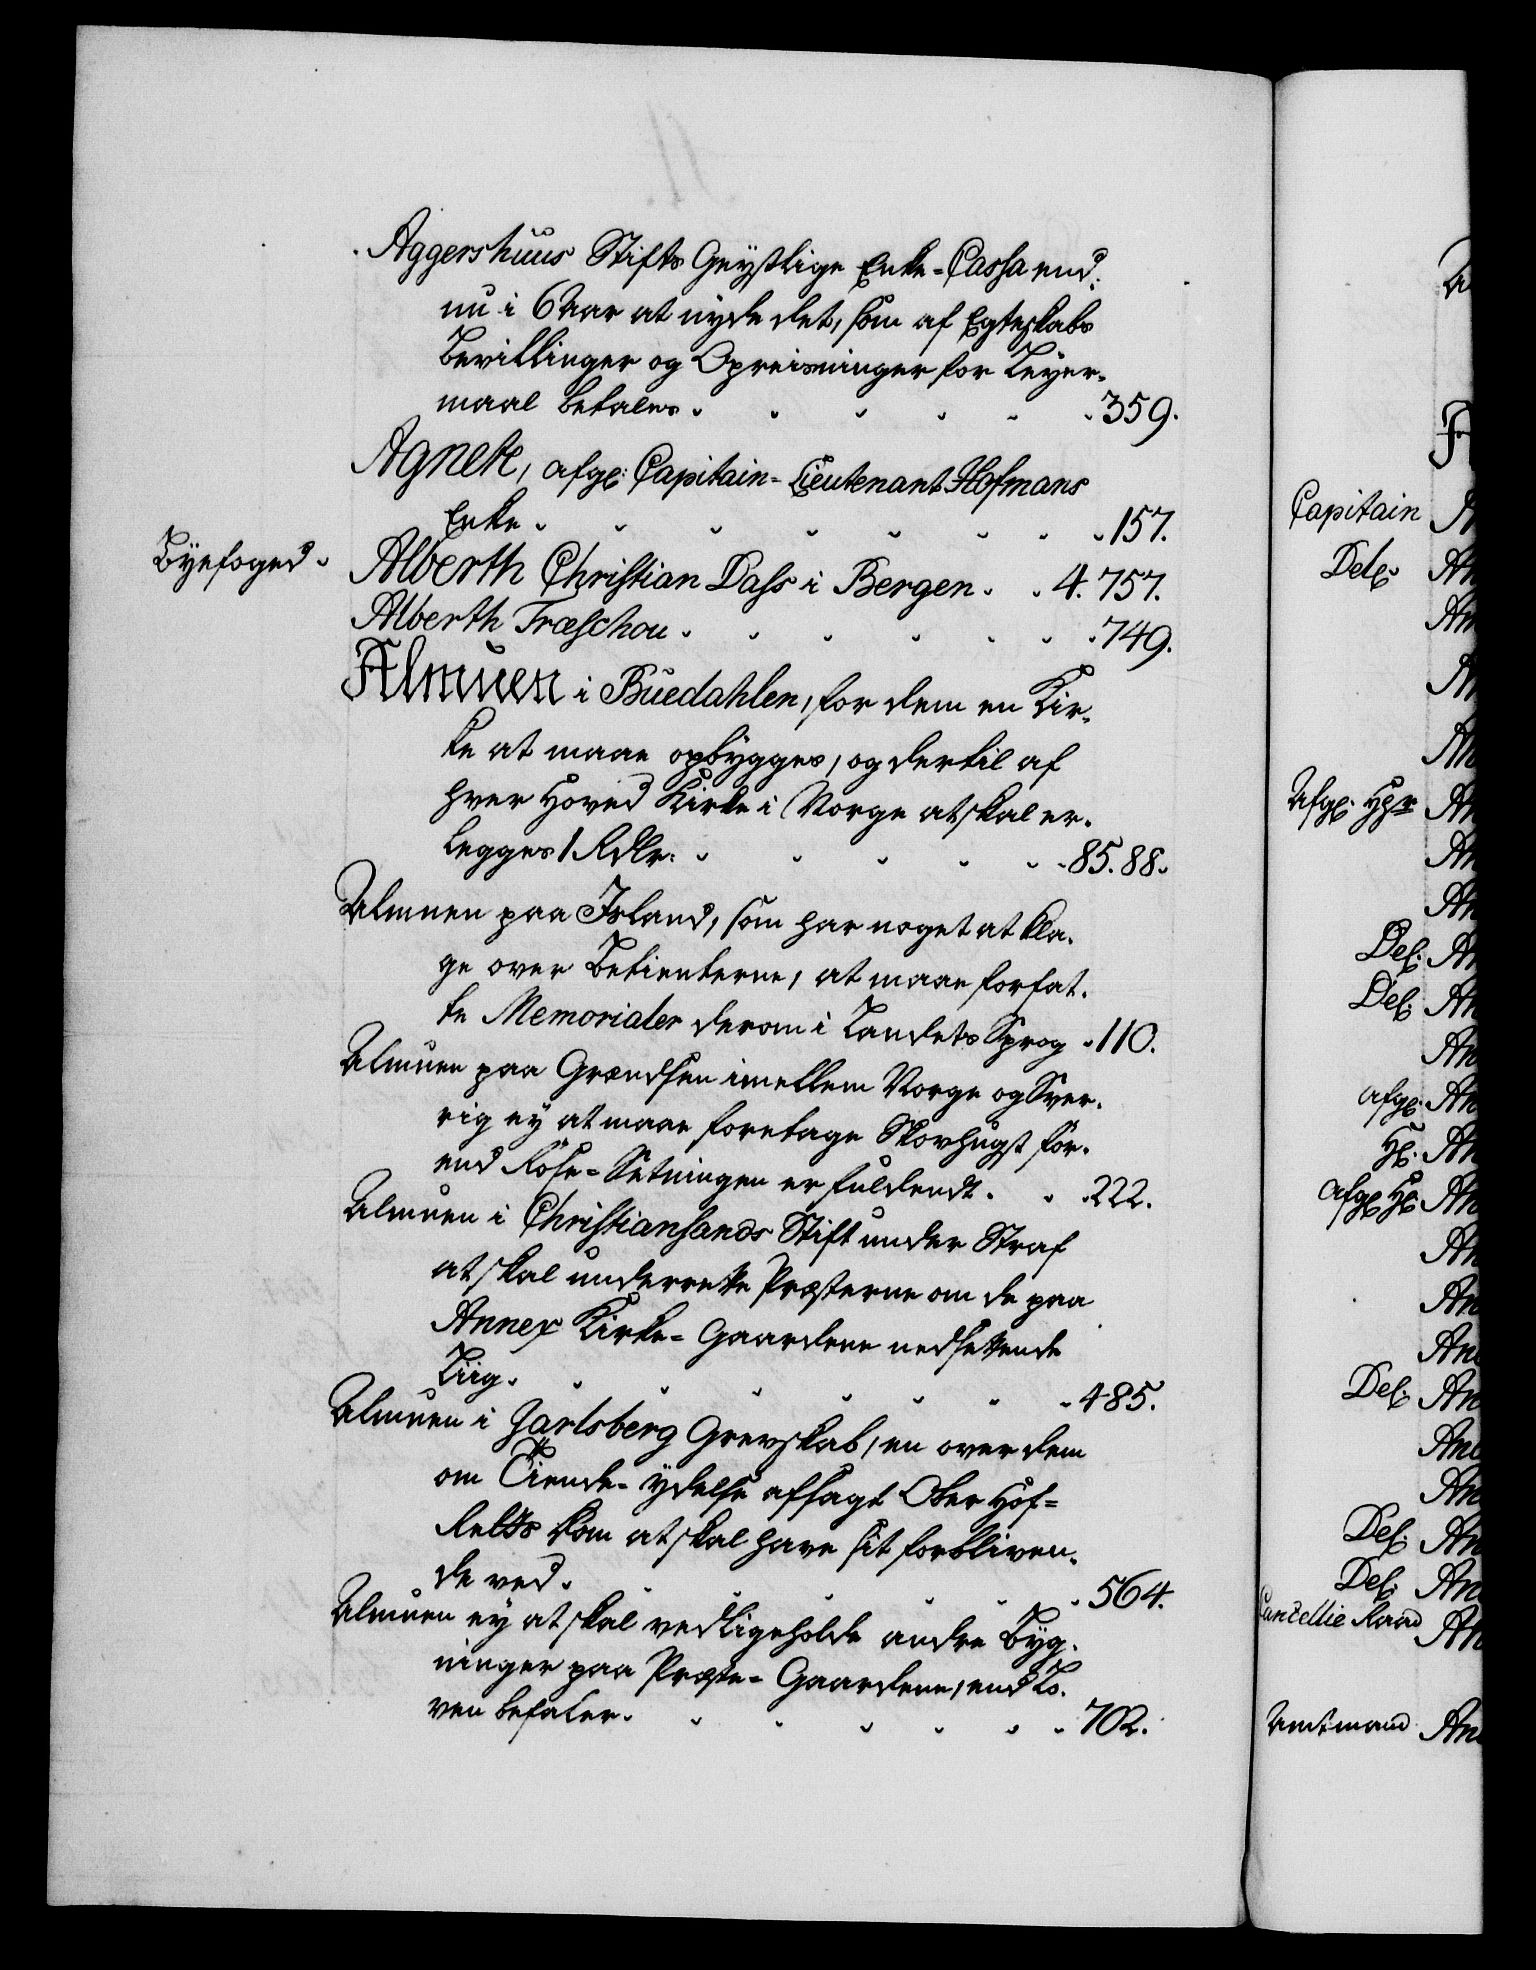 Aggershuus Stifts Geystlige Enke-Cassa end-
nu i 6 Aar at nyde det, som af Egteskabs
Bevillinger og Opreisninger for Leyer-
maal betales. 359.
Agnete, afg: Capitain-Lieutenant Hofmans
Enke. 157.
Byefoged. Alberth Christian Dass i Bergen. 4. 757.
Alberth Træschou. 749.
Almuen i Buedahlen, for dem en Kir-
ke at maae opbygges, og dertil af
hver Hoved Kirke i Norge at skal er-
legges 1 Rdlr. 85. 88.
Almuen paa Island, som har noget at kla-
ge over Betienterne, at maae forfat-
te Memorialer derom i Landets Sprog 110.
Almuen paa Grændsen imellem Norge og Sver-
rig ey at maae foretage Skovhugst for-
end Röse-Sætningen er fuldendt. 222.
Almuen i Christiansands Stift under Straf
at skal underrette Præsterne om de paa
Annex Kirke-Gaardene nedsettende
Liig. 485.
Almuen i Jarlsberg Grevskab, en over dem
om Tiende-ydelse afsagt Ober Hof-
Retts Dom at skal have sit forbliven-
de ved. 564.
Almuen ey at skal vedligeholde andre Byg-
ninger paa Præste-Gaardene, end Lo-
ven befaler. 702.
Capitain An
Del. An
An
An
An
Afg: Hr An
An
An
Del. An
Del. An
An
afg: An
Hr. An
afg Hr. An
An
An
An
Del. An
An
An
Del. An
Del. An
Cancellie Raad An
Amtmand An